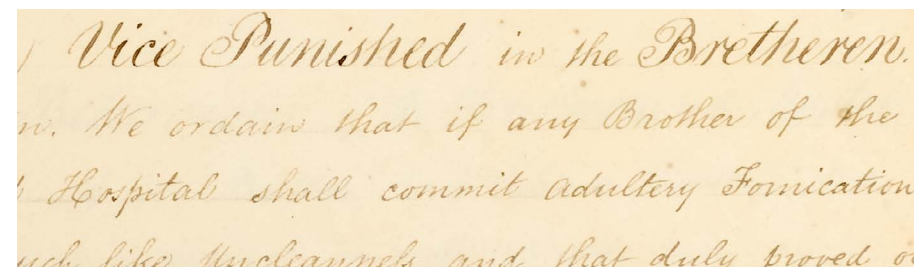 Vice Punished in the Bretheren.
We ordain that if any Brother of the
Hospital shall commit Adultery Fornication
like Uncleanness and that duly proved